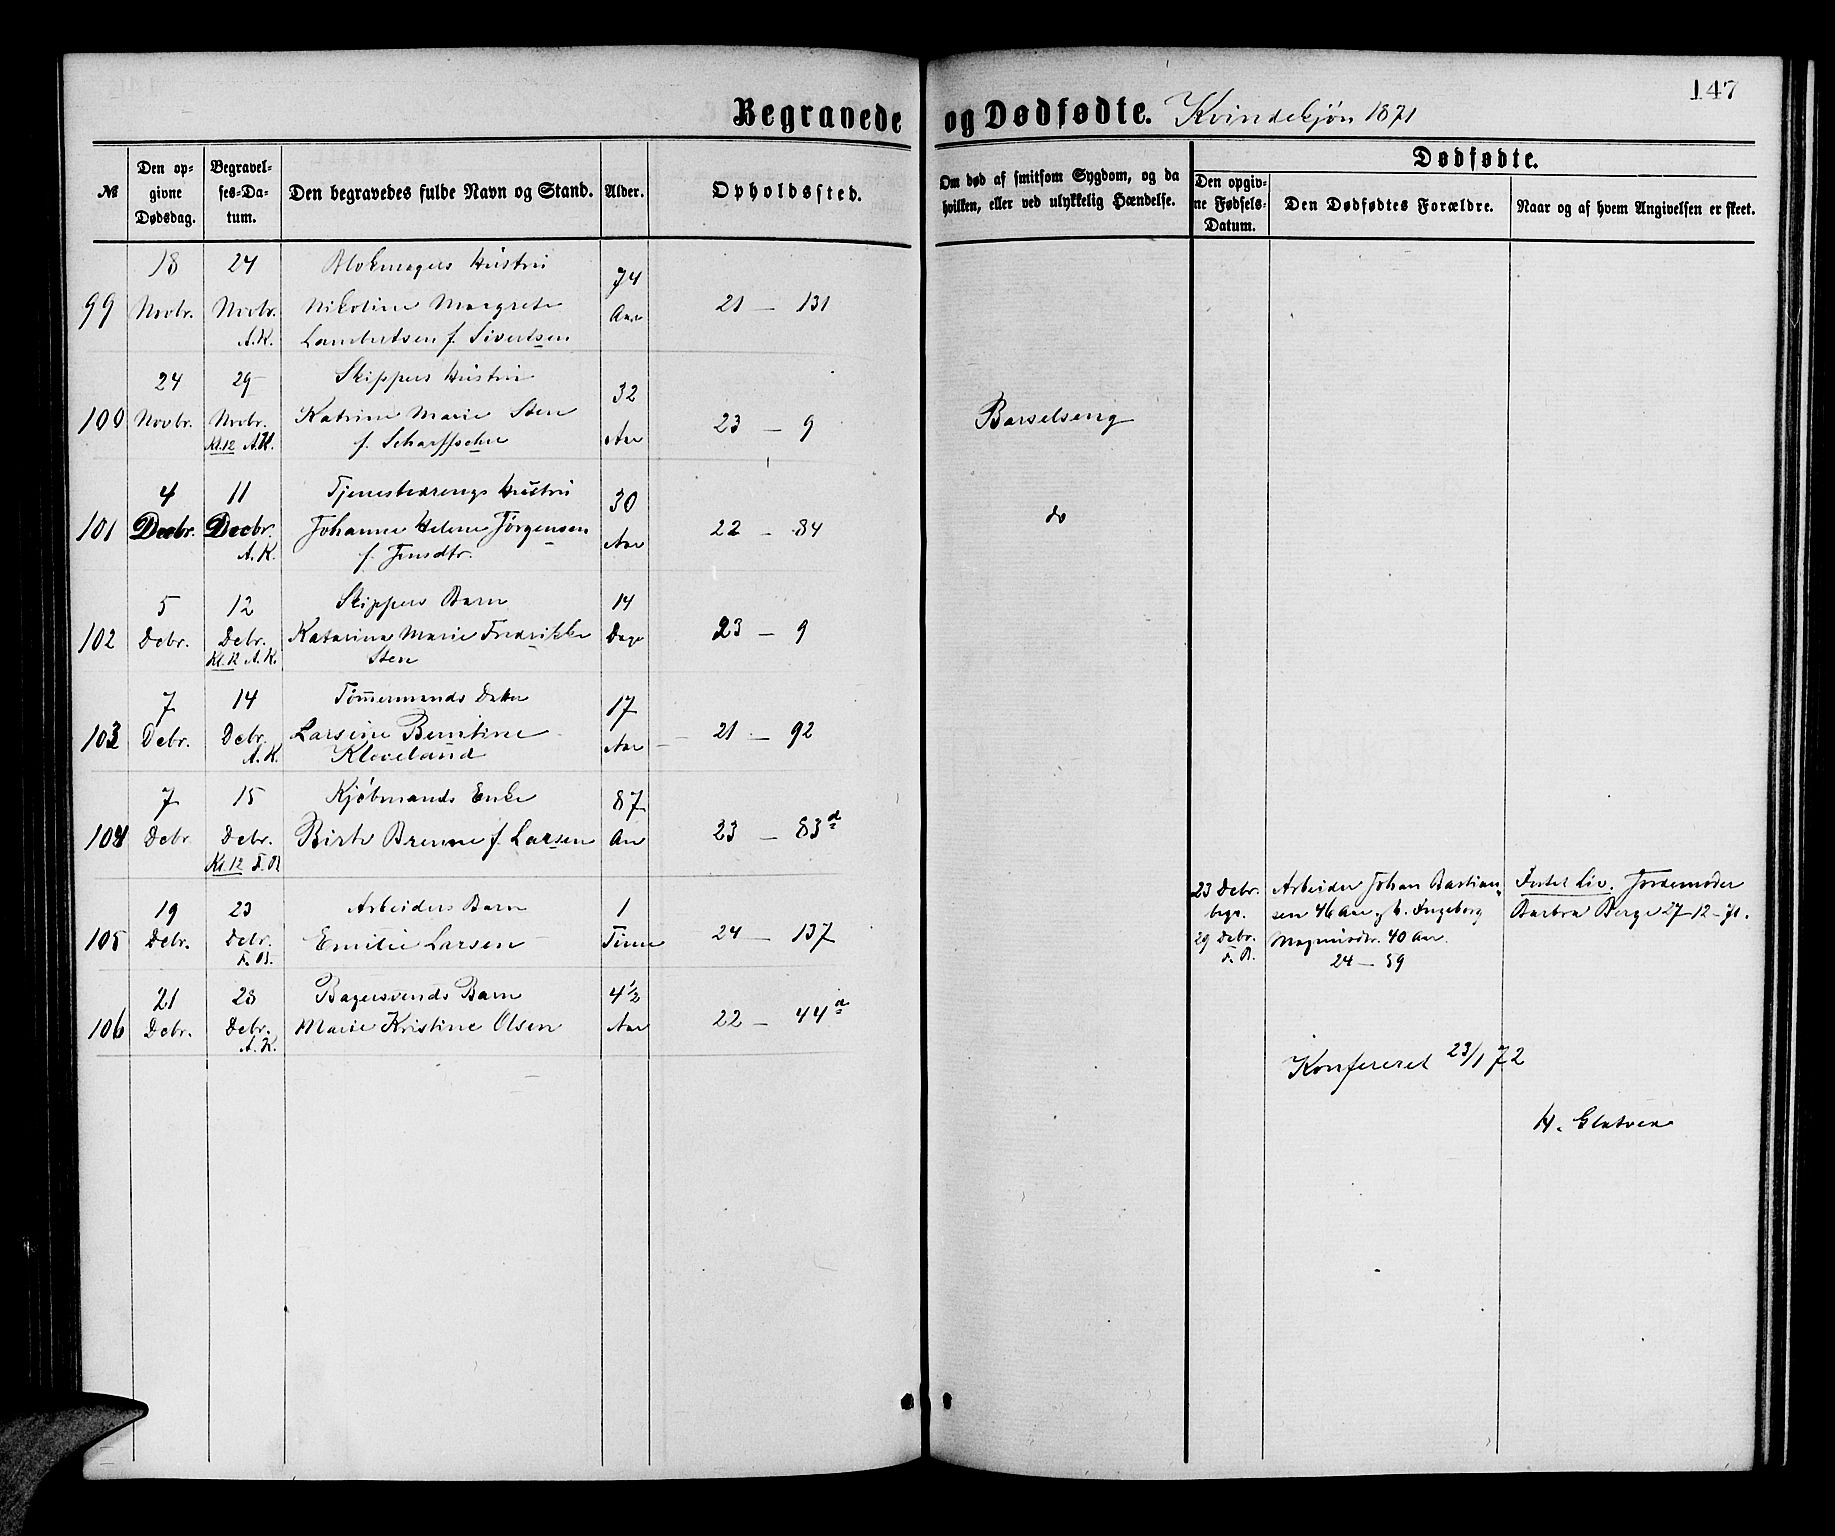 147
Begravede og Dødfødte. Kvindekjøn 1871
№
Den opgivne Dødsdag.
Begravelses-Datum.
Den begravedes fulde Navn og Stand.
Alder.
Opholdssted.
Om død af smitsom Sygdom, og da hvilken, eller ved ulykkelig Hændelse.
Dødfødte.
Den opgivne Fødsels-Datum.
Den Dødfødtes Forældre.
Naar og af hvem Angivelsen er skeet.
18 24 Blokmagers Hustru 74
99 Novbr. Novbr. Nikoline Margrete Aar 21 — 131
A.K. Lambertsen f. Sivertsen
24 29 Skippers Hustru 32
100 Novbr. Novbr. Katrine Marie Sten Aar 23 — 9 Barselseng
Kl. 12 A.K. f. Scharffscher
4 11 Tjenestedrengs Hustru 30
101 Decbr. Decbr. Johanne Helene Jørgensen Aar 22 — 84 do
A.K. f. Jensdtr.
5 12 Skippers Barn 14
102 Debr. Debr. Katarina Marie Fredrikke Dage 23 — 9
Kl. 12 A.K. Sten
7 14 Tømermands Datter 17
103 Debr. Debr. Larsine Berntine Aar 21 — 92
A.K. Kloveland
7 15 Kjøbmands Enke 87
104 Debr Debr. Birte Brenne f. Larsen Aar 23 — 83a
Kl. 12 F.B.
19 23 Arbeiders Barn 1
105 Debr. Debr. Emilie Larsen Time 24 — 137
F.B.
23 Debr. begr. 29 Debr. F.B.
Arbeider Johan Bastian
sen 46 Aar og h. Ingeborg
Magnusdtr. 40 Aar.
24 — 89
Intet Liv. Jordemoder
Barbra Berge 27-12-71.
21 28 Bagersvends Barn 4½
106 Debr. Debr. Marie Kristine Olsen Aar 22 — 44a
A.K.
Konfereret 23/1 72
H.